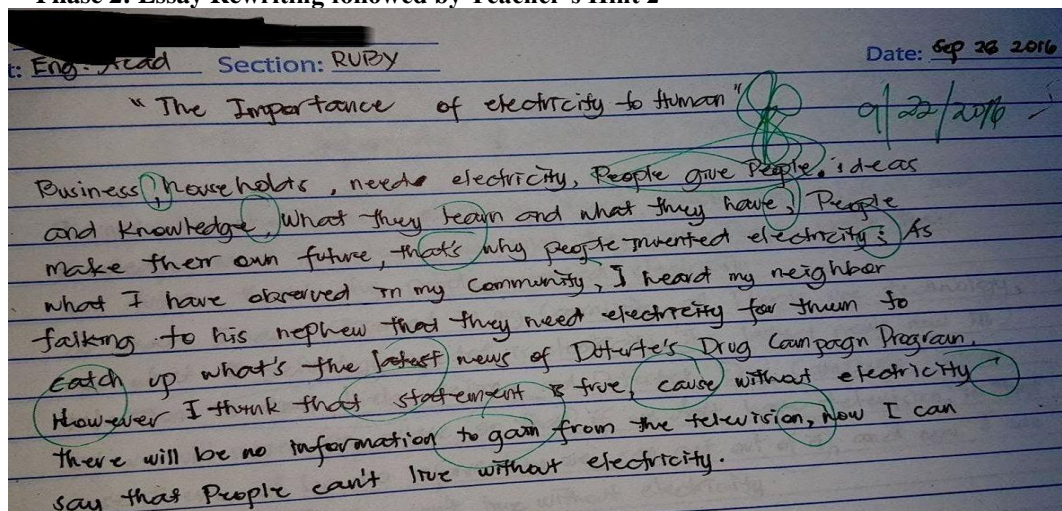 Phase 2: Essay Rewriting followed by Teacher's Hint 2
t: Eng. Acad Section: RUBY Date: Sep 26 2016
"The Importance of electricity to Human" 9/22/2016
Business, house holds, needs electricity, People give People. ideas
and knowledge, What they learn and what they have, People
make their own future, that's why people invented electricity; As
what I have observed in my community, I heard my neighbor
talking to his nephew that they need electricity for them to
catch up what's the latest news of Duterte's Drug Campaign Program.
However I think that statement is true, cause without electricity
there will be no information to gain from the television, now I can
say that People can't live without electricity.